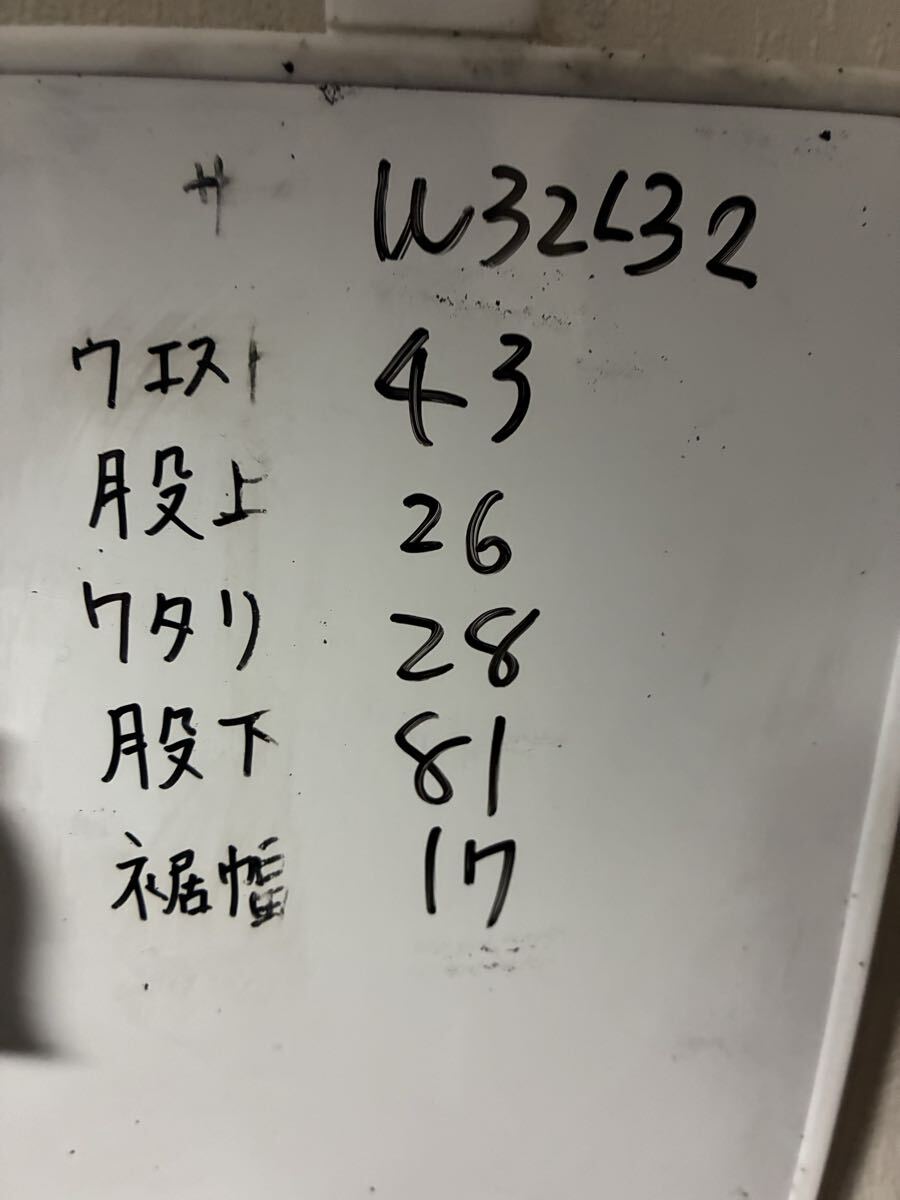 サ W32L32
ウエスト 43
股上 26
ワタリ 28
股下 81
裾幅 17